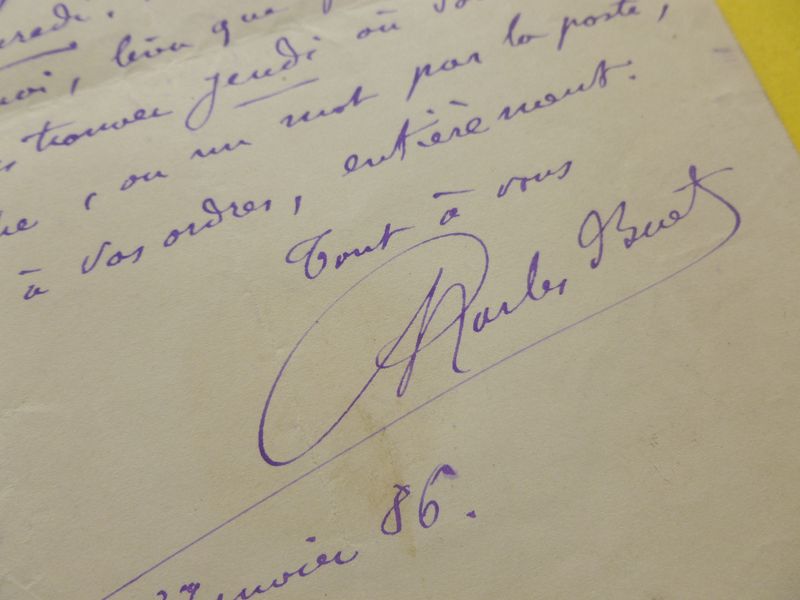 lieu que
trouver jeudi où
, ou un mot par la poste,
à vos ordres, entièrement.
Tout à vous
Charles Buet
janvier 86.